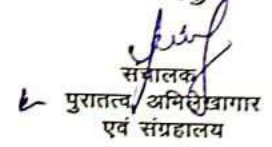 संचालक
पुरातत्व, अभिलेखागार
एवं संग्रहालय